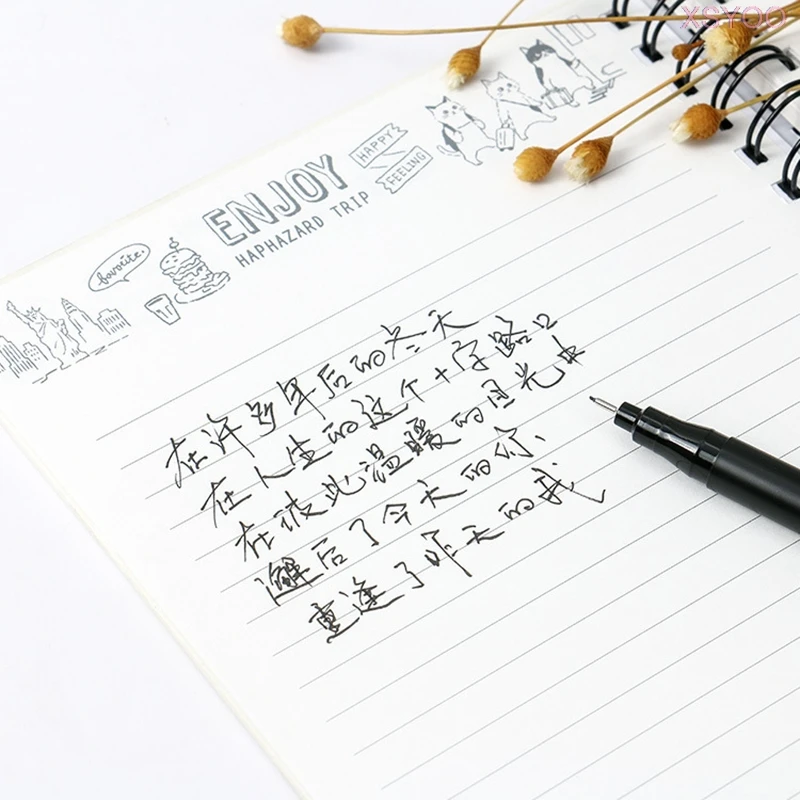 XSYOO
HAPPY
FEELING
ENJOY
HAPHAZARD TRIP
favorite.
在许多年后的冬天
在人生的这个十字路口
在彼此温暖的目光中
邂后了今天的你、
重逢了昨天的我